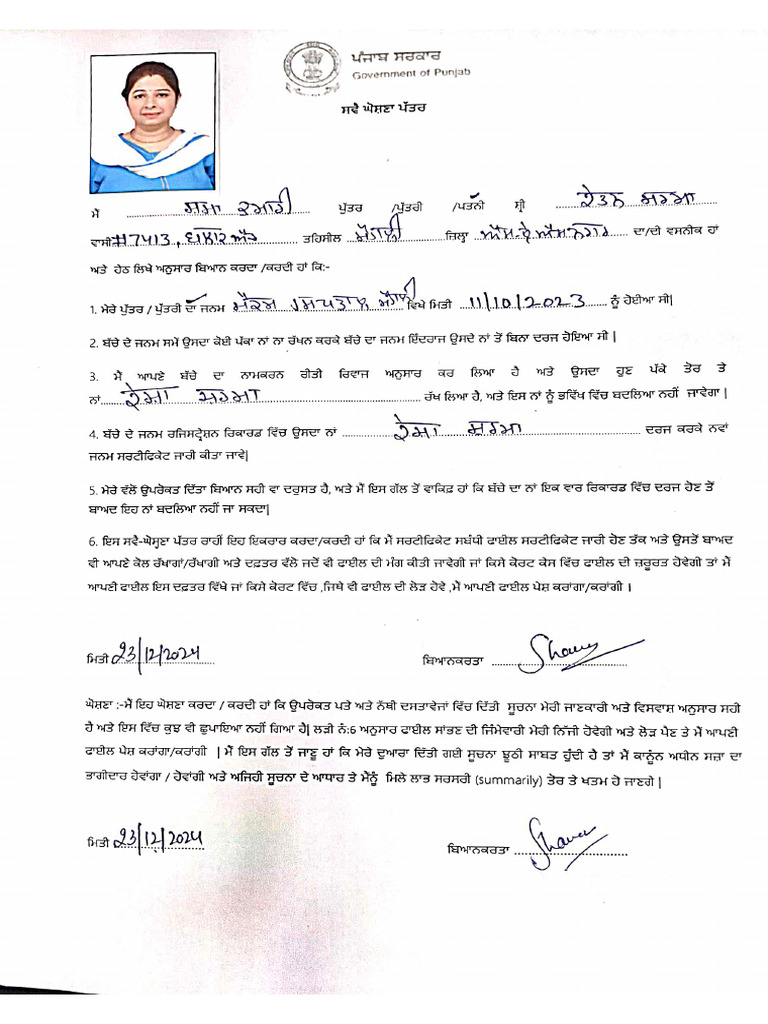 ਪੰਜਾਬ ਸਰਕਾਰ
Government of Punjab
ਸਵੈ ਘੋਸ਼ਣਾ ਪੱਤਰ
ਮੈਂ ਸ਼ਮਾ ਕੁਮਾਰੀ ਪੁੱਤਰ /ਪੁੱਤਰੀ /ਪਤਨੀ ਸ਼੍ਰੀ ਕੇਤਨ ਸ਼ਰਮਾ
ਵਾਸੀ #7413, ਤਹਿਸੀਲ ਮੋਹਾਲੀ ਜਿਲ੍ਹਾ ਐੱਸ.ਏ.ਐੱਸ ਨਗਰ ਦਾ/ਦੀ ਵਸਨੀਕ ਹਾਂ
ਅਤੇ ਹੇਠ ਲਿਖੇ ਅਨੁਸਾਰ ਬਿਆਨ ਕਰਦਾ /ਕਰਦੀ ਹਾਂ ਕਿ:-
1. ਮੇਰੇ ਪੁੱਤਰ / ਪੁੱਤਰੀ ਦਾ ਜਨਮ ਮੈਕਸ ਹਸਪਤਾਲ ਮੋਹਾਲੀ ਵਿਖੇ ਮਿਤੀ 11/10/2023 ਨੂੰ ਹੋਈਆ ਸੀ|
2. ਬੱਚੇ ਦੇ ਜਨਮ ਸਮੇਂ ਉਸਦਾ ਕੋਈ ਪੱਕਾ ਨਾਂ ਨਾ ਰੱਖਨ ਕਰਕੇ ਬੱਚੇ ਦਾ ਜਨਮ ਇੰਦਰਾਜ ਉਸਦੇ ਨਾਂ ਤੋਂ ਬਿਨਾ ਦਰਜ ਹੋਇਆ ਸੀ |
3. ਮੈਂ ਆਪਣੇ ਬੱਚੇ ਦਾ ਨਾਮਕਰਨ ਰੀਤੀ ਰਿਵਾਜ ਅਨੁਸਾਰ ਕਰ ਲਿਆ ਹੈ ਅਤੇ ਉਸਦਾ ਹੁਣ ਪੱਕੇ ਤੋਰ ਤੇ
ਨਾਂ ਸ਼ਰਮਾ ਰੱਖ ਲਿਆ ਹੈ, ਅਤੇ ਇਸ ਨਾਂ ਨੂੰ ਭਵਿੱਖ ਵਿੱਚ ਬਦਲਿਆ ਨਹੀਂ ਜਾਵੇਗਾ |
4. ਬੱਚੇ ਦੇ ਜਨਮ ਰਜਿਸਟ੍ਰੇਸ਼ਨ ਰਿਕਾਰਡ ਵਿੱਚ ਉਸਦਾ ਨਾਂ ਸ਼ਰਮਾ ਦਰਜ ਕਰਕੇ ਨਵਾਂ
ਜਨਮ ਸਰਟੀਫਿਕੇਟ ਜਾਰੀ ਕੀਤਾ ਜਾਵੇ|
5. ਮੇਰੇ ਵੱਲੋਂ ਉਪਰੋਕਤ ਦਿੱਤਾ ਬਿਆਨ ਸਹੀ ਵਾ ਦਰੁਸਤ ਹੈ, ਅਤੇ ਮੈਂ ਇਸ ਗੱਲ ਤੋਂ ਵਾਕਿਫ਼ ਹਾਂ ਕਿ ਬੱਚੇ ਦਾ ਨਾਂ ਇਕ ਵਾਰ ਰਿਕਾਰਡ ਵਿੱਚ ਦਰਜ ਹੋਣ ਤੋਂ
ਬਾਅਦ ਇਹ ਨਾਂ ਬਦਲਿਆ ਨਹੀਂ ਜਾ ਸਕਦਾ|
6. ਇਸ ਸਵੈ-ਘੋਸ੍ਣਾ ਪੱਤਰ ਰਾਹੀਂ ਇਹ ਇਕਰਾਰ ਕਰਦਾ/ਕਰਦੀ ਹਾਂ ਕਿ ਮੈਂ ਸਰਟੀਫਿਕੇਟ ਸਬੰਧੀ ਫਾਈਲ ਸਰਟੀਫਿਕੇਟ ਜਾਰੀ ਹੋਣ ਤੱਕ ਅਤੇ ਉਸਤੋਂ ਬਾਅਦ
ਵੀ ਆਪਣੇ ਕੋਲ ਰੱਖਾਗਾਂ/ਰੱਖਾਗੀ ਅਤੇ ਦਫ਼ਤਰ ਵੱਲੋ ਜਦੋਂ ਵੀ ਫਾਈਲ ਦੀ ਮੰਗ ਕੀਤੀ ਜਾਵੇਗੀ ਜਾਂ ਕਿਸੇ ਕੋਰਟ ਕੇਸ ਵਿੱਚ ਫਾਈਲ ਦੀ ਜ਼ਰੂਰਤ ਹੋਵੇਗੀ ਤਾਂ ਮੈਂ
ਆਪਣੀ ਫਾਈਲ ਇਸ ਦਫ਼ਤਰ ਵਿੱਖੇ ਜਾਂ ਕਿਸੇ ਕੋਰਟ ਵਿੱਚ ,ਜਿਥੇ ਵੀ ਫਾਈਲ ਦੀ ਲੋੜ ਹੋਵੇ ,ਮੈਂ ਆਪਣੀ ਫਾਈਲ ਪੇਸ਼ ਕਰਾਂਗਾ/ਕਰਾਂਗੀ ।
ਮਿਤੀ 23/12/2024 ਬਿਆਨਕਰਤਾ
ਘੋਸ਼ਣਾ :-ਮੈਂ ਇਹ ਘੋਸ਼ਣਾ ਕਰਦਾ / ਕਰਦੀ ਹਾਂ ਕਿ ਉਪਰੋਕਤ ਪਤੇ ਅਤੇ ਨੱਥੀ ਦਸਤਾਵੇਜਾਂ ਵਿੱਚ ਦਿੱਤੀ ਸੂਚਨਾ ਮੇਰੀ ਜਾਣਕਾਰੀ ਅਤੇ ਵਿਸਵਾਸ਼ ਅਨੁਸਾਰ ਸਹੀ
ਹੈ ਅਤੇ ਇਸ ਵਿੱਚ ਕੁਝ ਵੀ ਛੁਪਾਇਆ ਨਹੀਂ ਗਿਆ ਹੈ| ਲੜੀ ਨੰ:6 ਅਨੁਸਾਰ ਫਾਈਲ ਸਾਂਭਣ ਦੀ ਜਿੰਮੇਵਾਰੀ ਮੇਰੀ ਨਿੱਜੀ ਹੋਵੇਗੀ ਅਤੇ ਲੋੜ ਪੈਣ ਤੇ ਮੈਂ ਆਪਣੀ
ਫਾਈਲ ਪੇਸ਼ ਕਰਾਂਗਾ/ਕਰਾਂਗੀ | ਮੈਂ ਇਸ ਗੱਲ ਤੋਂ ਜਾਣੂ ਹਾਂ ਕਿ ਮੇਰੇ ਦੁਆਰਾ ਦਿੱਤੀ ਗਈ ਸੂਚਨਾ ਝੂਠੀ ਸਾਬਤ ਹੁੰਦੀ ਹੈ ਤਾਂ ਮੈਂ ਕਾਨੂੰਨ ਅਧੀਨ ਸਜ਼ਾ ਦਾ
ਭਾਗੀਦਾਰ ਹੋਵਾਂਗਾ / ਹੋਵਾਂਗੀ ਅਤੇ ਅਜਿਹੀ ਸੂਚਨਾ ਦੇ ਆਧਾਰ ਤੇ ਮੈਨੂੰ ਮਿਲੇ ਲਾਭ ਸਰਸਰੀ (summarily) ਤੋਰ ਤੇ ਖਤਮ ਹੋ ਜਾਣਗੇ |
ਮਿਤੀ 23/12/2024 ਬਿਆਨਕਰਤਾ